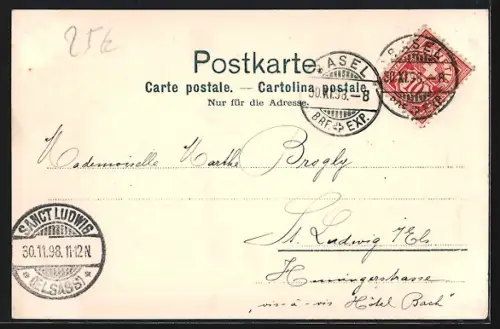 25€
Postkarte.
Carte postale. — Cartolina postale
Nur für die Adresse.
BASEL
30.XI.98.—8
BRF. EXP.
BASEL
30.XI.98.—8
BRF. EXP.
Mademoiselle Marthe Brogly
St. Ludwig i/Els
Hüningerstrasse
„vis-à-vis Hôtel Bach"
SANCT LUDWIG
30.11.98. 11-12 N.
* (ELSASS) *